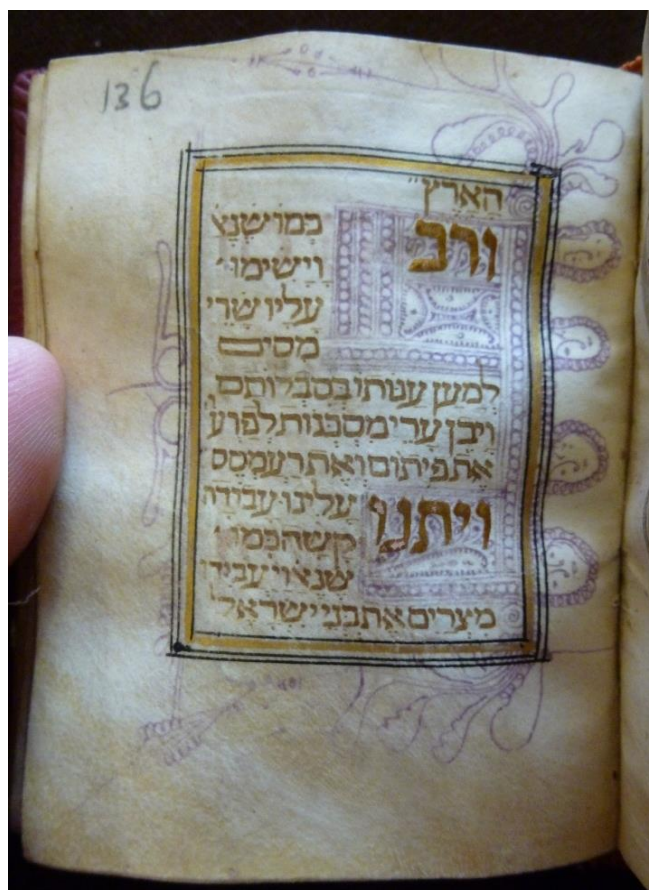 136
הארץ״
ורב כמו שנא
וישימו
עליו שרי
מסים
למען ענותו בסבלותם
ויבן ערי מסכנות לפרע
את פיתום ואת רעמסס
ויתנו עלינו עבודה
קשה כמו
שנא ויעבידו
מצרים את בני ישראל